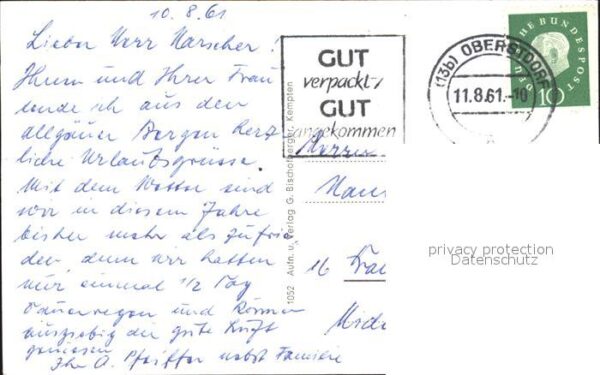 10.8.61
Lieber Herr Marscher!
Ihnen und Ihrer Frau
sende ich aus den
allgäuer Bergen herz-
liche Urlaubsgrüsse.
Mit dem Wetter sind
wir in diesem Jahre
bisher mehr als zufrie-
den denn wir hatten
nur einmal 1/2 Tag
Dauerregen und können
ausgiebig die gute Luft
geniesen
Ihr A. Pfeiffer nebst Familie
1052 Aufn. u. Verlag G. Bischofberger, Kempten
GUT
verpackt-
GUT
angekommen
(13b) OBERSTDORF
11.8.61.-10
DEUTSCHE BUNDESPOST
10
Herrn
Hans
16
privacy protection
Datenschutz